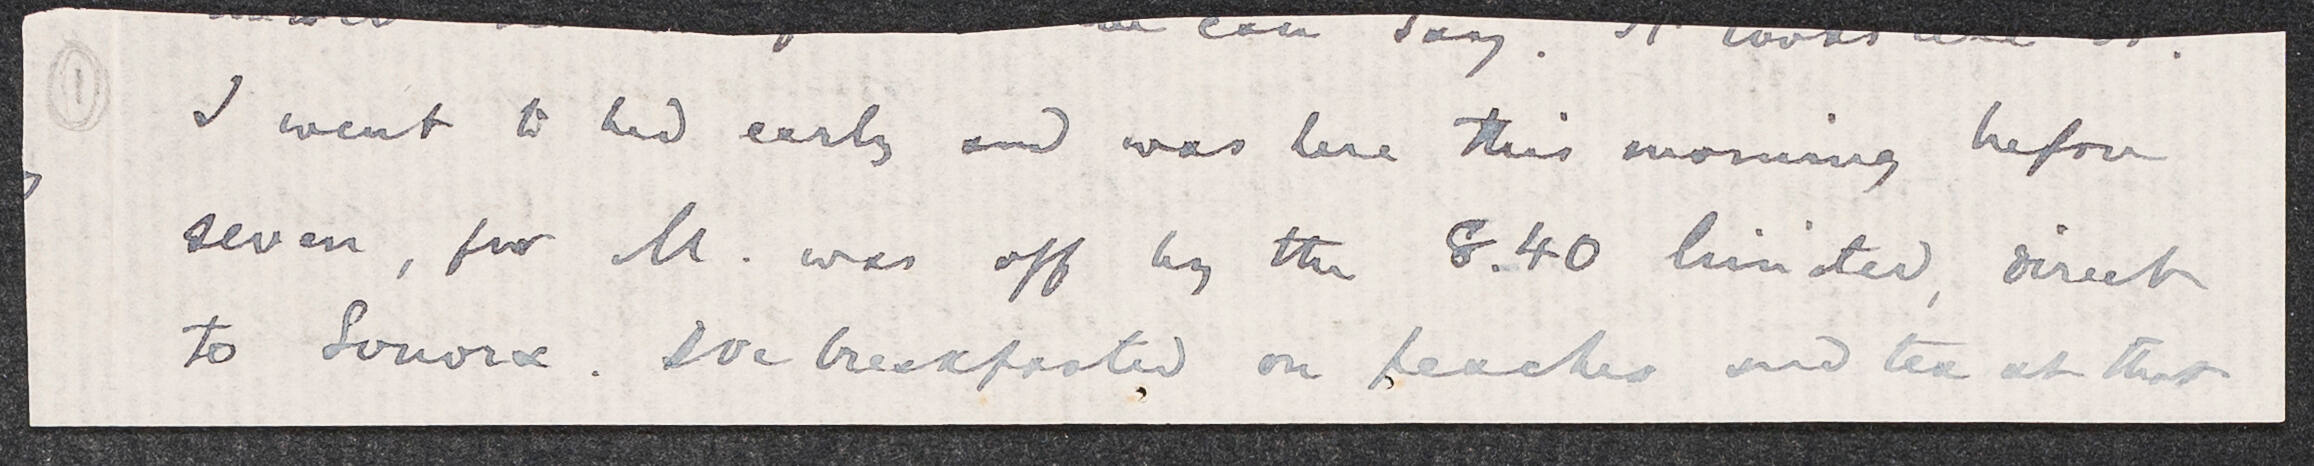 can say. It looks like it.
I went to bed early and was here this morning before
seven, for M. was off by the 8.40 limited, direct
to Sonora. We breakfasted on peaches and tea at that